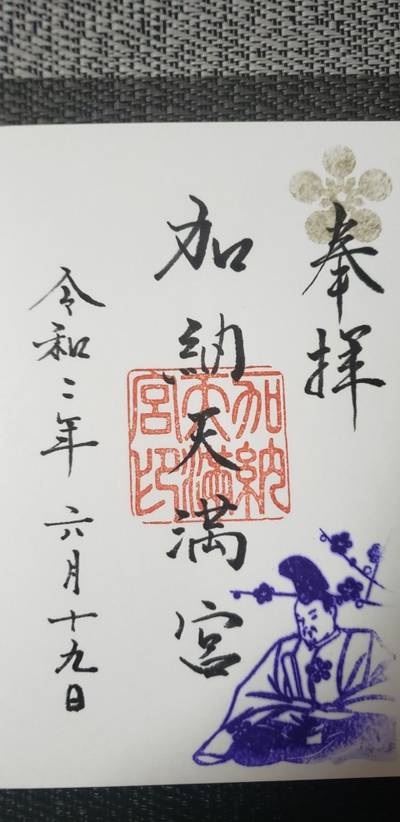 奉拝
加納天満宮
加納
天満
宮印
令和二年 六月十九日